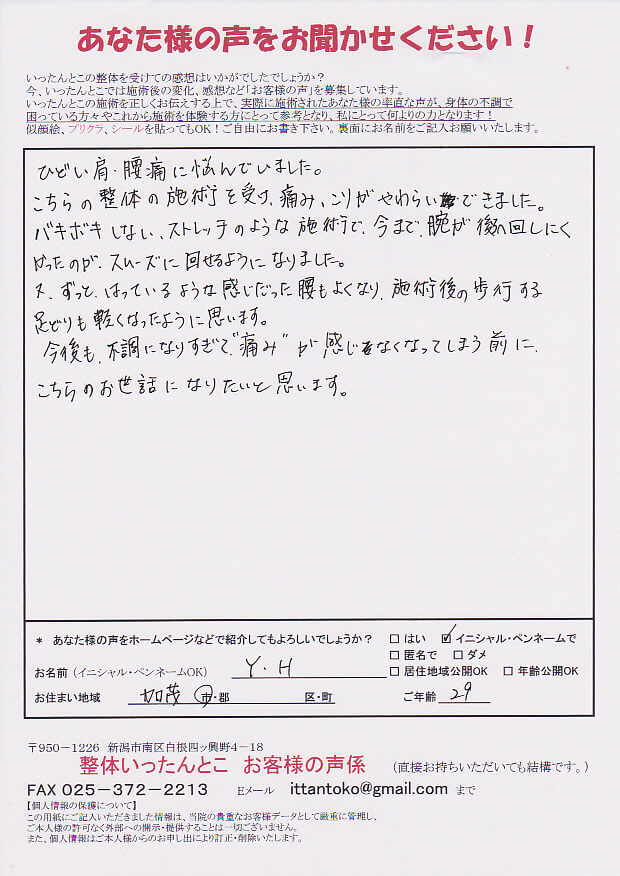 あなた様の声をお聞かせください!
いったんとこの整体を受けての感想はいかがでしたでしょうか?
今、いったんとこでは施術後の変化、感想など「お客様の声」を募集しています。
いったんとこの施術を正しくお伝えする上で、実際に施術されたあなた様の率直な声が、身体の不調で
困っている方々やこれから施術を体験する方にとって参考となり、私にとって何よりの力となります!
似顔絵、プリクラ、シールを貼ってもOK!ご自由にお書き下さい。裏面にお名前をご記入お願いいたします。
ひどい肩・腰痛に悩んでいました。
こちらの整体の施術を受け、痛み、こりがやわらいできました。
バキボキしない、ストレッチのような施術で、今まで、腕が後へ回しにく
かったのが、スムーズに回せるようになりました。
又、ずっと、はっているような感じだった腰もよくなり、施術後の歩行する
足どりも軽くなったように思います。
今後も、不調になりすぎて"痛み"が感じなくなってしまう前に、
こちらのお世話になりたいと思います。
* あなた様の声をホームページなどで紹介してもよろしいでしょうか? □ はい ☑ イニシャル・ペンネームで
□ 匿名で □ ダメ
お名前(イニシャル・ペンネームOK) Y・H □ 居住地域公開OK □ 年齢公開OK
お住まい地域 加茂 市・郡 区・町 ご年齢 29
〒950-1226 新潟市南区白根四ッ興野4-18
整体いったんとこ お客様の声係 (直接お持ちいただいても結構です。)
FAX 025-372-2213 Eメール ittantoko@gmail.com まで
【個人情報の保護について】
この用紙にご記入いただきました情報は、当院の貴重なお客様データとして厳重に管理し、
ご本人様の許可なく外部への開示・提供することは一切ございません。
また、個人情報はご本人様からのお申し出により訂正・削除いたします。